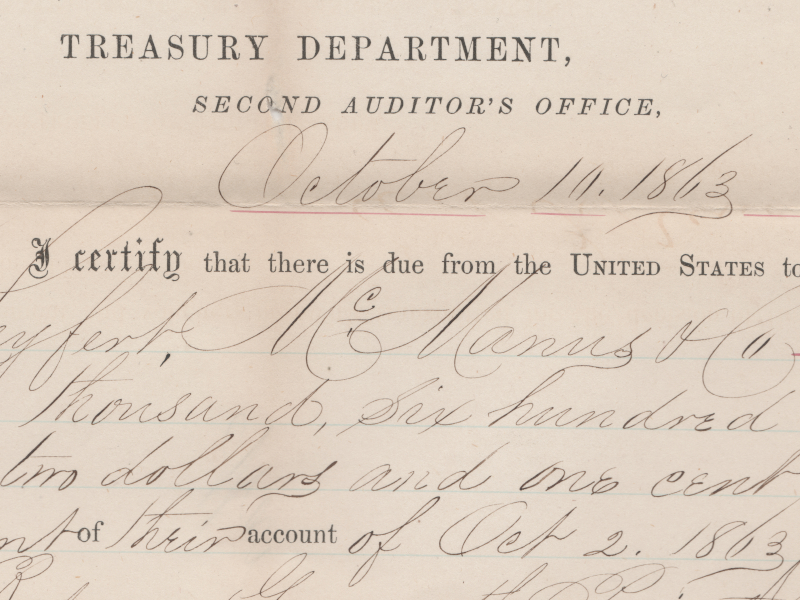 TREASURY DEPARTMENT,
SECOND AUDITOR'S OFFICE,
October 10. 1863
I certify that there is due from the UNITED STATES to
eyfert, McManus & Co
thousand, six hundred
two dollars and one cent
nt of their account of Oct 2. 1863